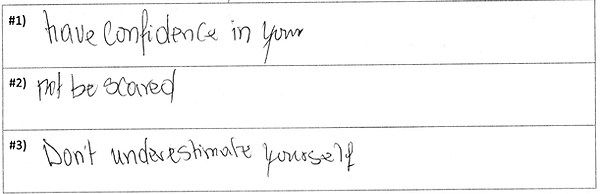 #1) have confidence in your
#2) not be scared
#3) Don't underestimate yourself